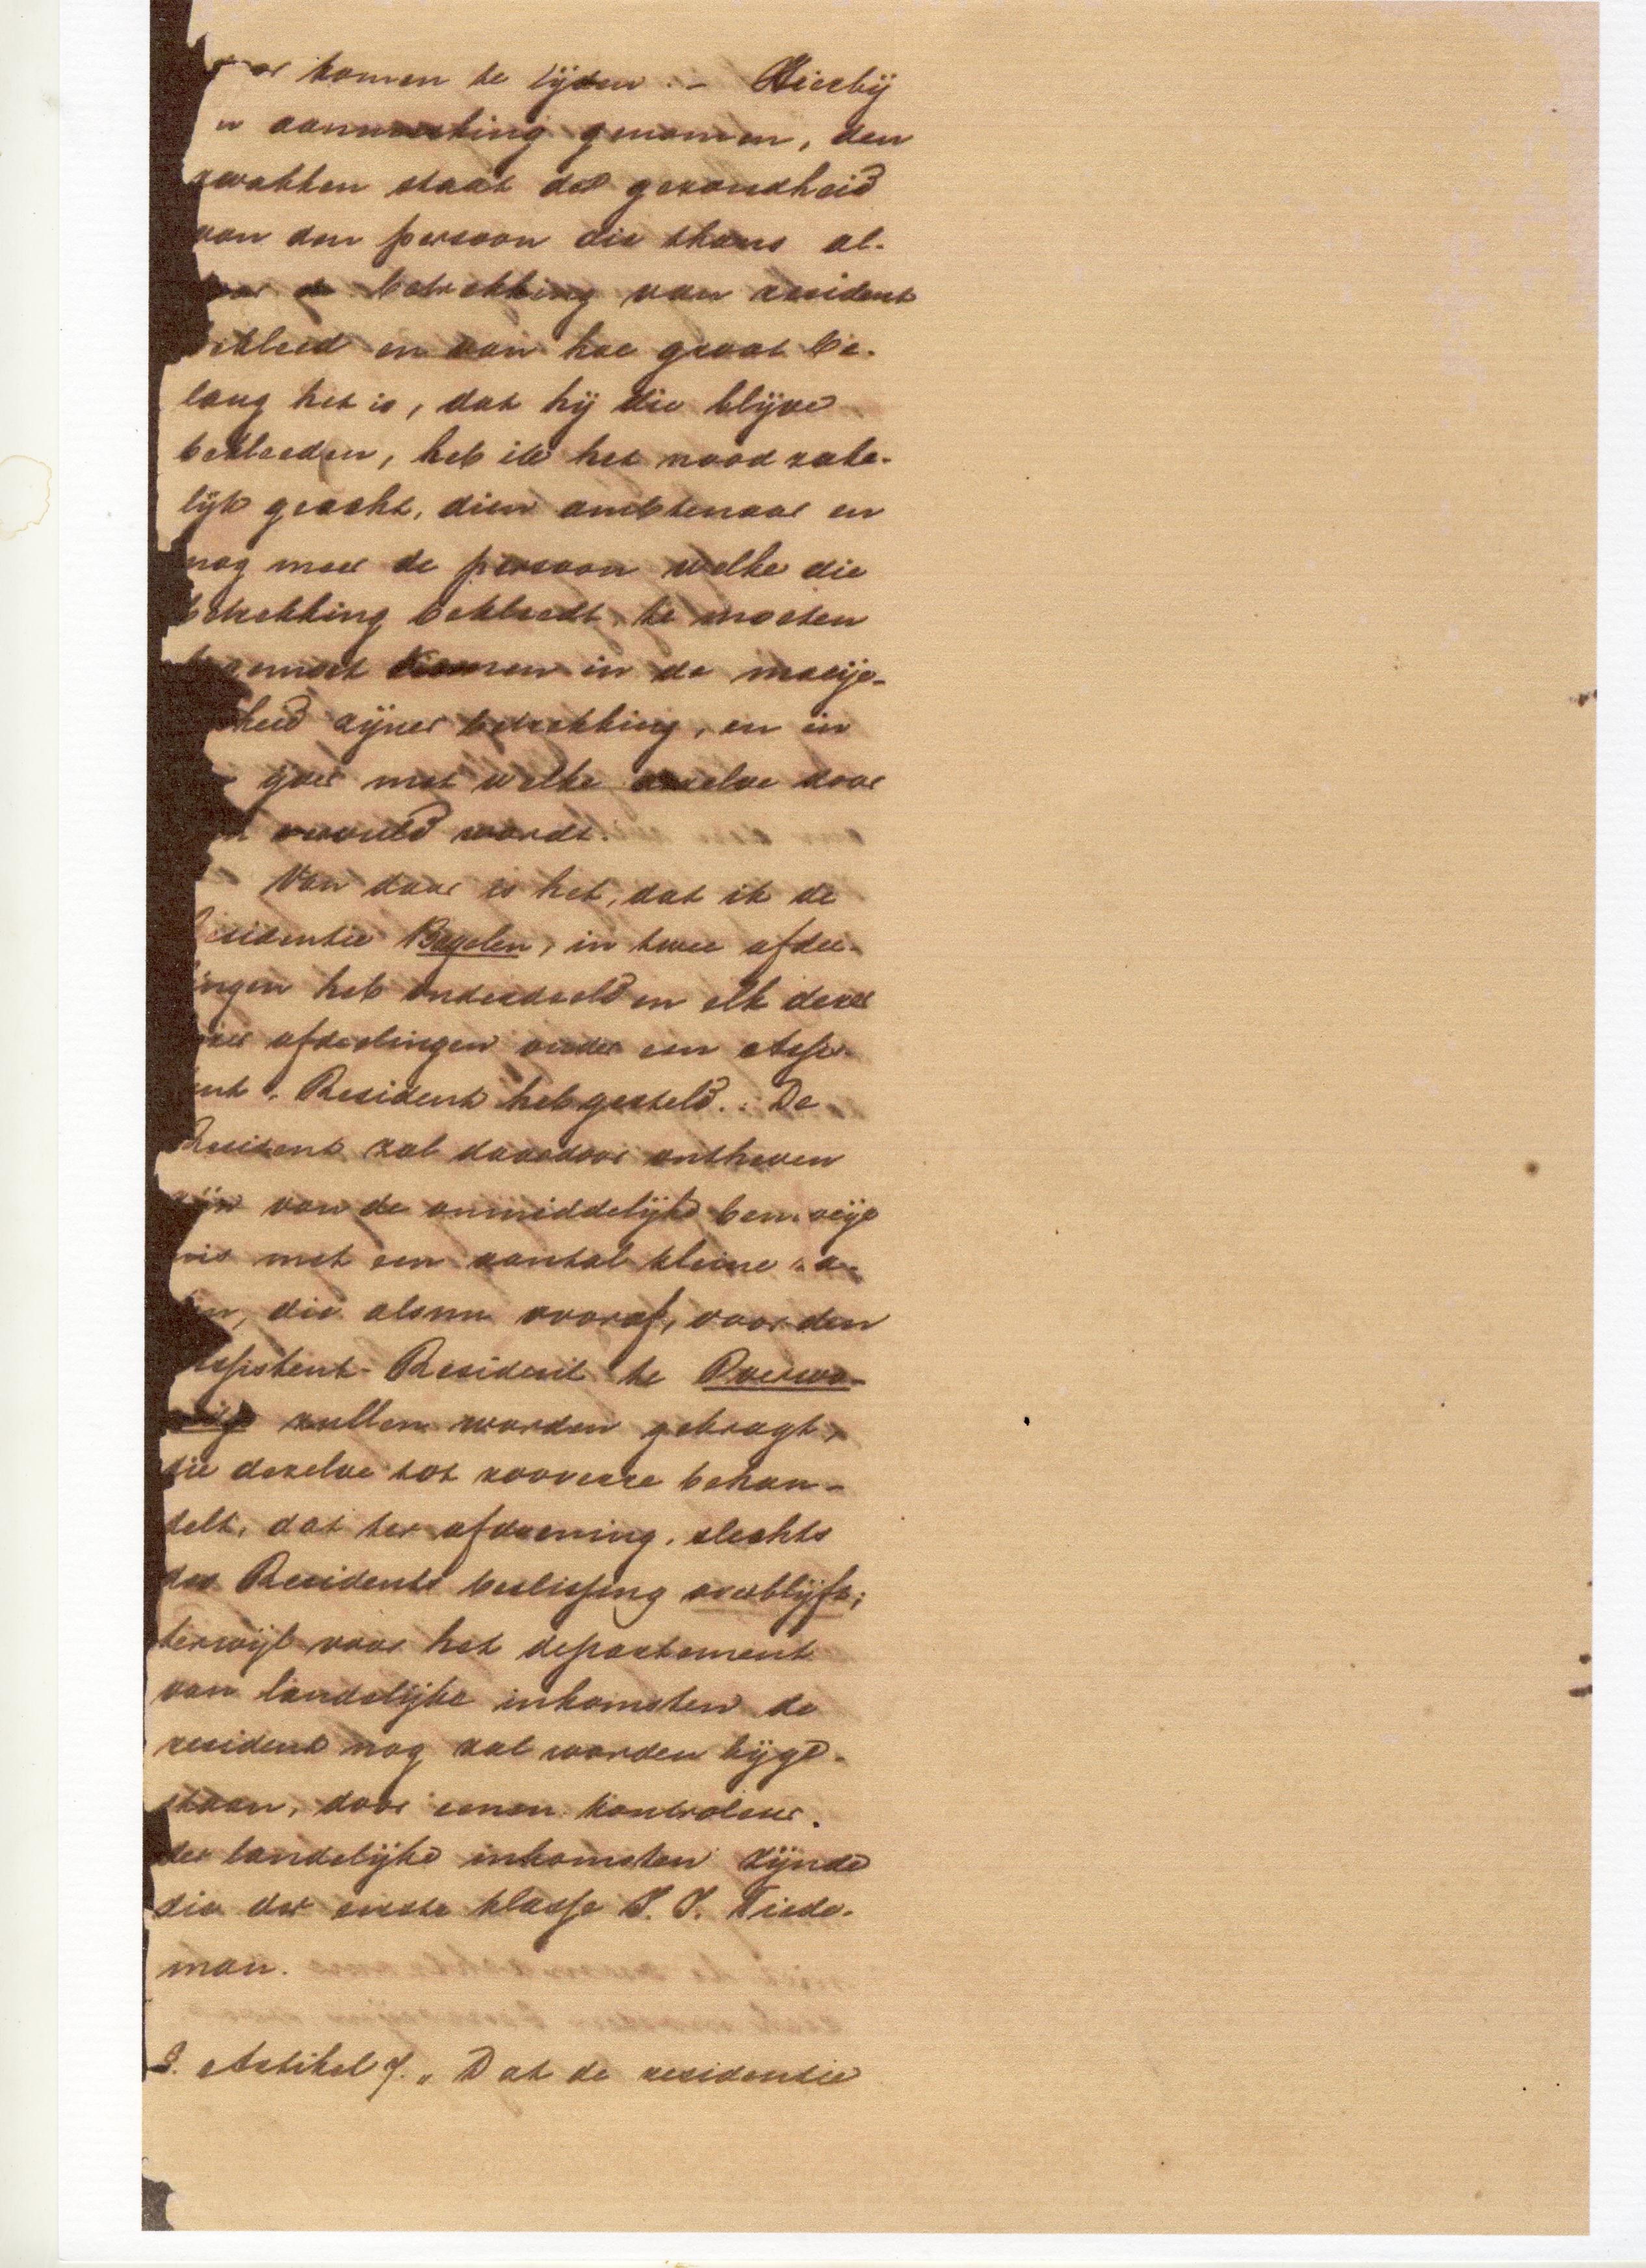 komen te lijden. – Hierbij
in aanmerking genomen, den
zwakken staat der gezondheid
van den persoon die thans al-
daar de betrekking van resident
bekleed en van hoe groot be-
lang het is, dat hij die blijve
bekleeden, heb ik het noodzake-
lijk geacht, dien ambtenaar en
nog meer de persoon welke die
betrekking bekleedt te moeten
komen in de moeije-
heid zijner betrekking, en in
ijver met welke dezelve door
vervuld wordt.
Van daar is het, dat ik de
residentie Bagelen, in twee afdee-
lingen heb onderdeeld en elk dezer
afdeelingen onder een Assis-
tent-Resident heb gesteld. De
Resident zal daardoor ontheven
zijn van de onmiddelijke bemoeije
nis met een aantal kleine za-
ken, die alsnu vooraf, voor den
Assistent-Resident te Poerwo-
zullen worden gebragt,
die dezelve tot zooverre behan-
delt, dat ter afdoening, slechts
des Residents beslissing overblijft;
terwijl voor het departement
van landelijke inkomsten de
resident nog zal worden bijge-
staan, door eenen kontroleur
der landelijke inkomsten zijnde
die der eerste klasse Tiede-
man.
§. Artikel 7. „Dat de residentie